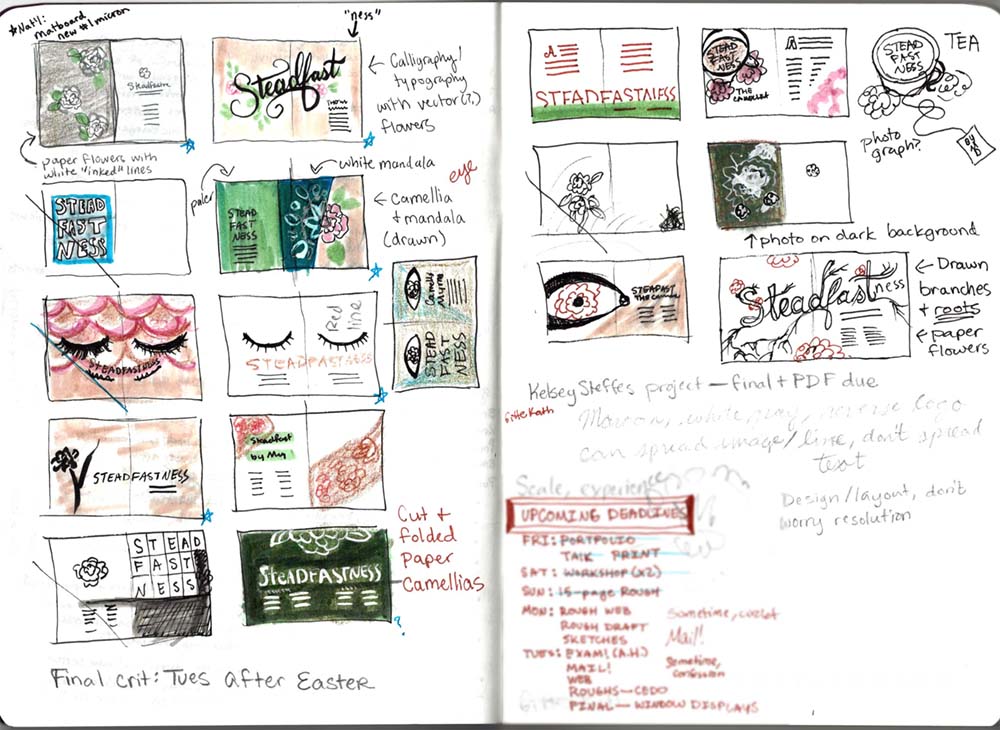 *Nat'l:
matboard
new #1 micron
"ness"
Steadfast
Steadfast
Calligraphy/
typography
with vector(?)
flowers
paper flowers with
white "inked" lines
STEAD
FAST
NESS
paler
white mandala
eye
STEAD
FAST
NESS
Camellia
+ mandala
(drawn)
STEADFASTNESS
Red
line
STEADFASTNESS
STEAD
FAST
NESS
STEADFASTNESS
Steadfast
by Myg
STEAD
FAST
NESS
STEADFASTNESS
Cut +
folded
paper
camellias
?
Final crit: Tues after Easter
A
STEADFASTNESS
STEAD
FAST
NESS
THE CAMELLIA
A
STEAD
FAST
NESS
TEA
photo
graph?
photo on dark background
STEADFAST
Steadfast
ness
Drawn
branches
+ roots
paper
flowers
Kelsey Steffes project — final + PDF due
Maroon, white, gray, reverse logo
can spread image/line, don't spread
text
Scale, experience
Design/layout, don't
worry resolution
UPCOMING DEADLINES
FRI: PORTFOLIO
TALK PRINT
SAT: WORKSHOP (X2)
SUN: 15-page ROUGH
MON: ROUGH WEB
ROUGH DRAFT
SKETCHES
Mail!
TUES: EXAM! (A.H.)
MAIL!
WEB
Sometime,
confession
ROUGHS—CEDO
FINAL — WINDOW DISPLAYS